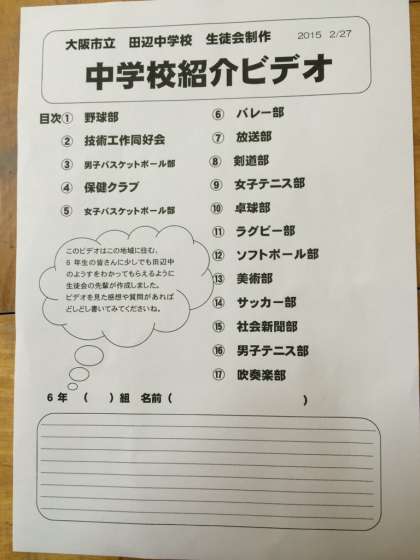 大阪市立 田辺中学校 生徒会制作 2015 2/27
中学校紹介ビデオ
目次① 野球部
② 技術工作同好会
③ 男子バスケットボール部
④ 保健クラブ
⑤ 女子バスケットボール部
⑥ バレー部
⑦ 放送部
⑧ 剣道部
⑨ 女子テニス部
⑩ 卓球部
⑪ ラグビー部
⑫ ソフトボール部
⑬ 美術部
⑭ サッカー部
⑮ 社会新聞部
⑯ 男子テニス部
⑰ 吹奏楽部
このビデオはこの地域に住む、
6年生の皆さんに少しでも田辺中
のようすをわかってもらえるように
生徒会の先輩が作成しました。
ビデオを見た感想や質問があれば
どしどし書いてみてくださいね。
6年 ( )組 名前( )